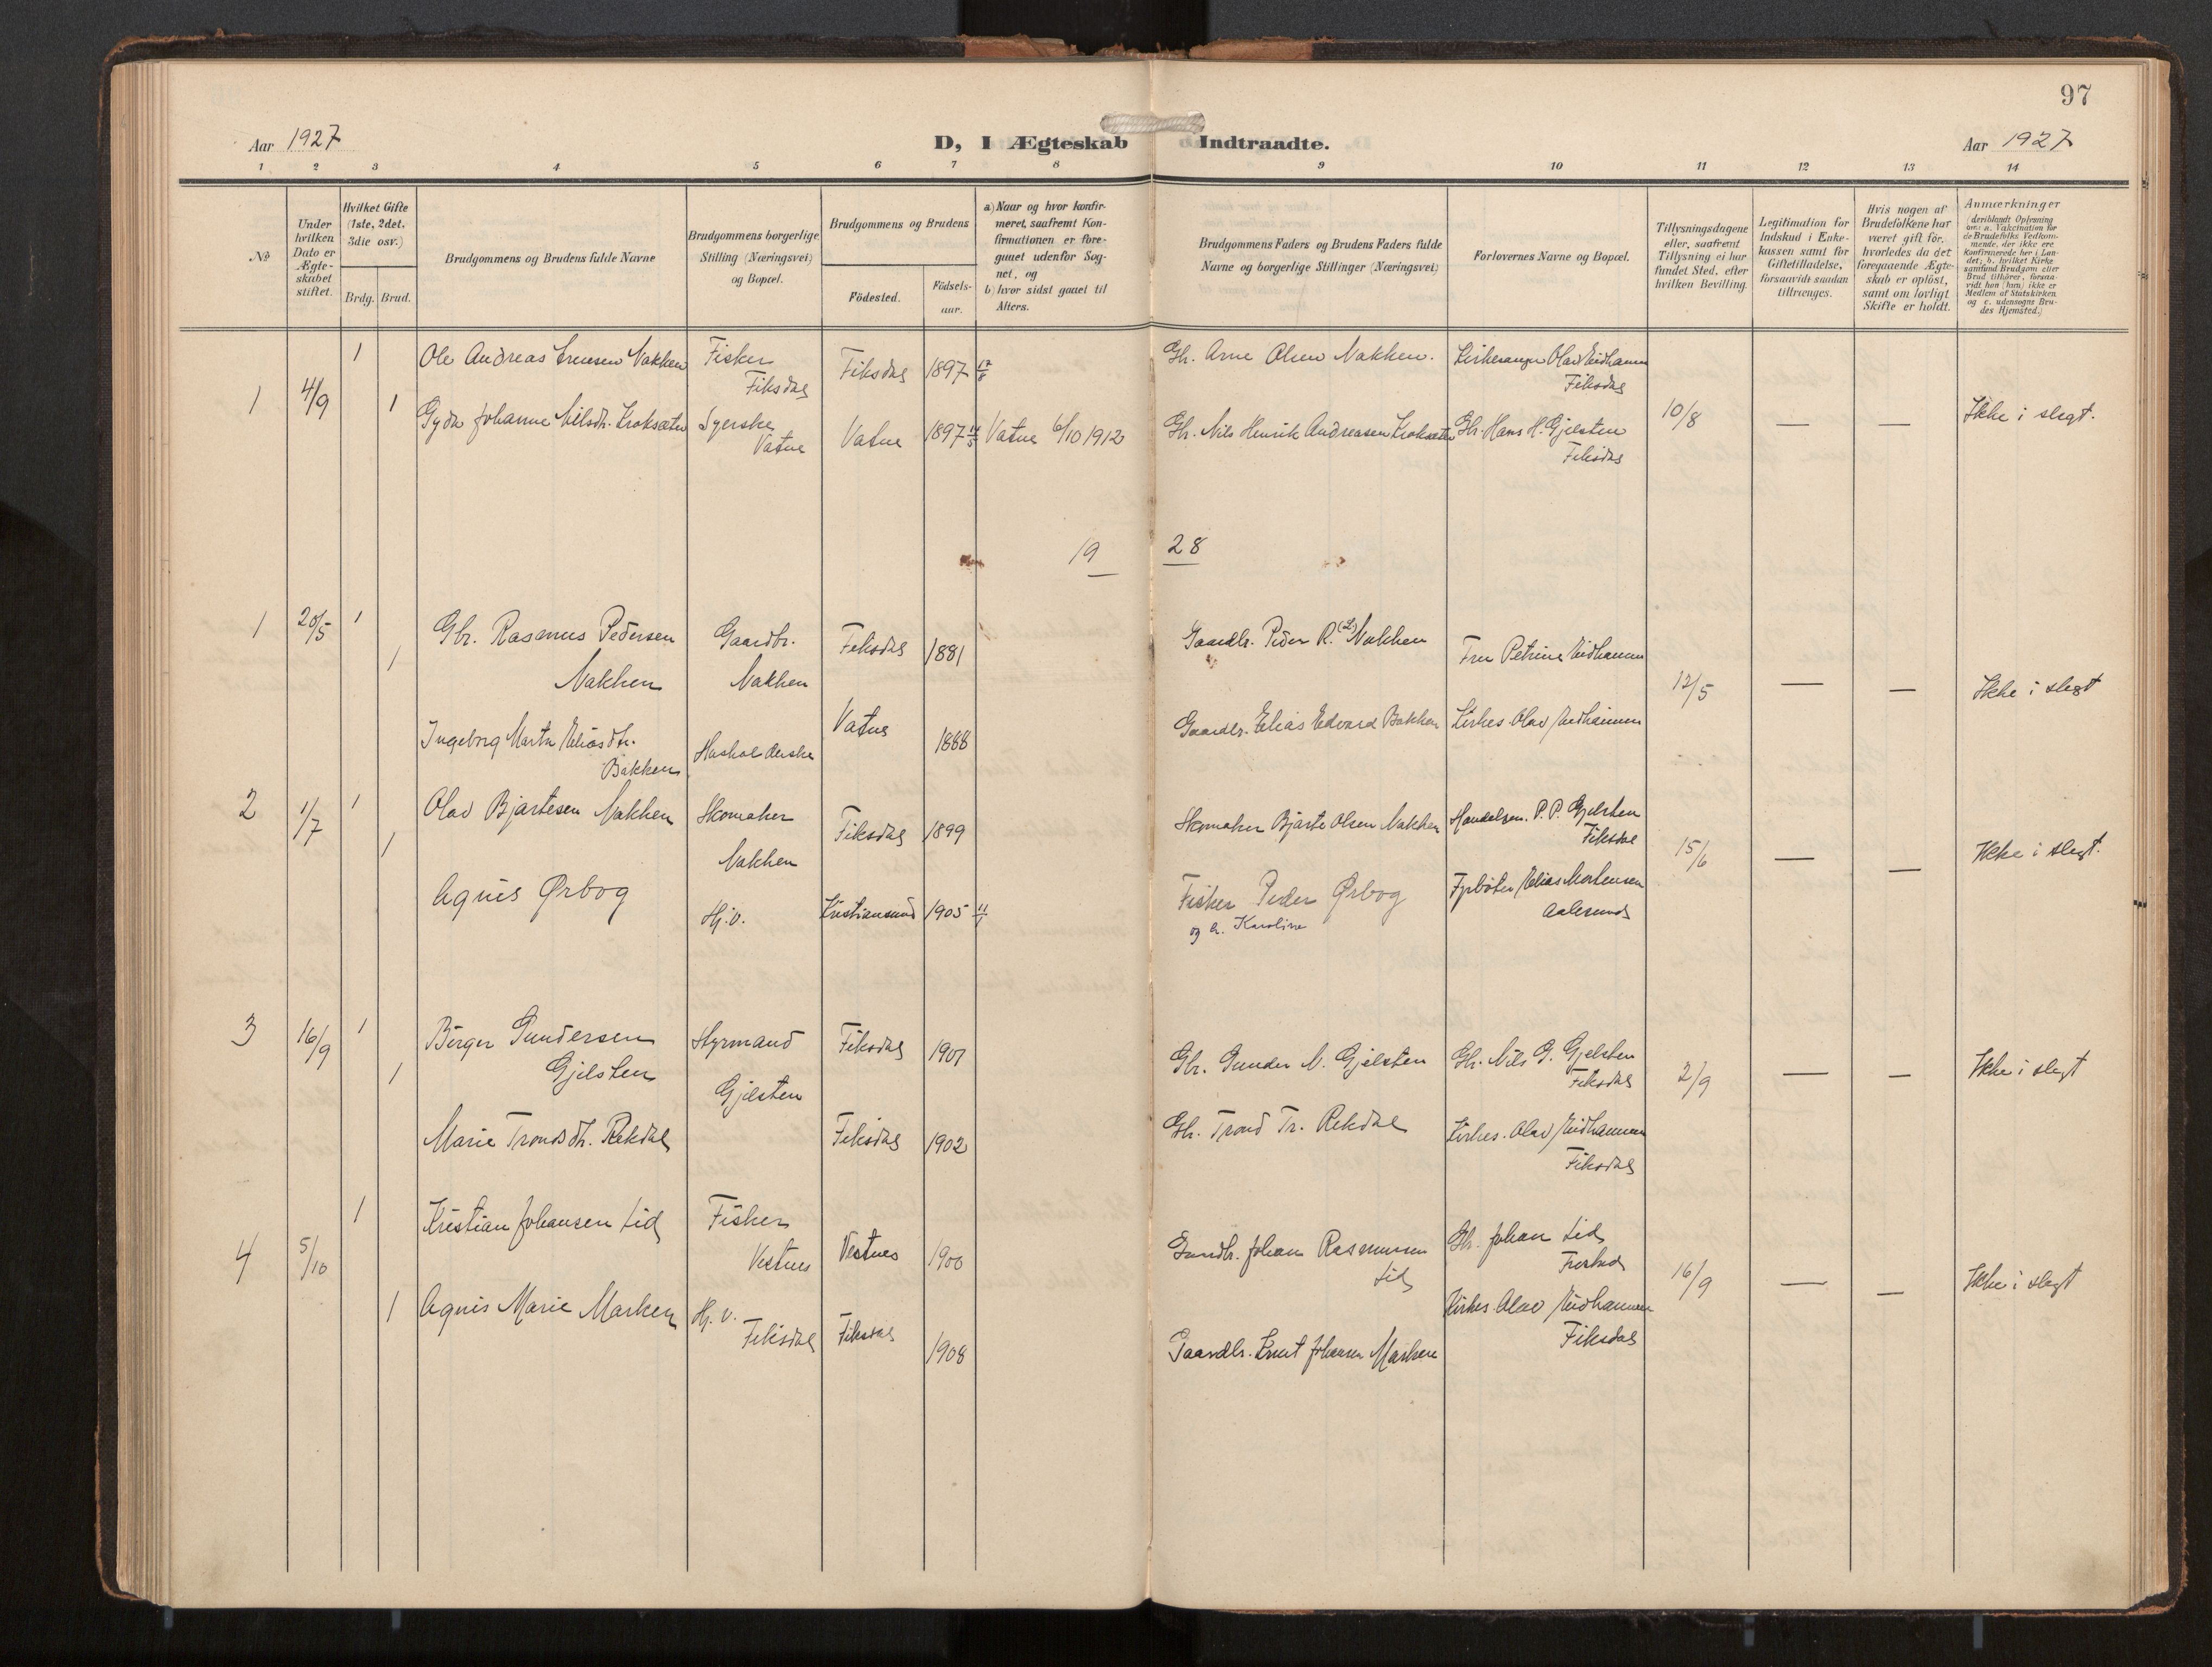 97
Aar 1927
D, I Ægteskab Indtraadte.
Aar 1927
1 2 3 4 5 6 7 8 9 10 11 12 13 14
No
Under
hvilken
Dato er
Ægte-
skabet
stiftet.
Hvilket Gifte
(1ste, 2det,
3die osv.)
Brdg. Brud.
Brudgommens og Brudens fulde Navne
Brudgommens borgerlige
Stilling (Næringsvei)
og Bopæl.
Brudgommens og Brudens
Födested.
Födsels-
aar.
a) Naar og hvor konfir-
meret, saafremt Kon-
firmationen er fore-
gaaet udenfor Sog-
net, og
b) hvor sidst gaaet til
Alters.
Brudgommens Faders og Brudens Faders fulde
Navne og borgerlige Stillinger (Næringsvei)
Forlovernes Navne og Bopæl.
Tillysningsdagene
eller, saafremt
Tillysning ei har
fundet Sted, efter
hvilken Bevilling.
Legitimation for
Indskud i Enke-
kassen samt for
Giftetilladelse,
forsaavidt saadan
tiltrænges.
Hvis nogen af
Brudefolkene har
været gift för,
hvorledes da det
foregaaende Ægte-
skab er oplöst,
samt om lovligt
Skifte er holdt.
Anmærkninger
(deriblandt Oplysning
om: a. Vakcination for
de Brudefolks Vedkom-
mende, der ikke ere
Konfirmerede her i Lan-
det; b. hvilket Kirke
samfund Brudgom eller
Brud tilhörer, forsaa-
vidt han (hun) ikke er
Medlem af Statskirken
og c. udensogns Bru-
des Hjemsted.)
1 4/9 1 1
Ole Andreas Arnesen Nakken
Gyda Johanne Nilsdtr. Kroksæter
Fisker
Fiksdal
Syerske
Vatne
Fiksdal 1897 17/8
Vatne 1897
Vatne 6/10 1912
Gbr. Arne Olsen Nakken.
Gbr. Nils Henrik Andreasen Kroksæter
Kirkesanger Olav Eidhamm
Fiksdal
Gbr. Hans H. Gjelsten
Fiksdal
10/8 — — Ikke i slegt.
19 28
1 20/5 1 1
Gbr. Rasmus Pedersen
Nakken
Ingeborg Marta Eliasdtr.
Bakken
Gaardbr.
Nakken
Husholderske
Fiksdal 1881
Vatne 1888
Gaardbr. Peder R. Nakken
Gaardbr. Elias Edvard Bakken
Fru Petrine Eidhamm
Kirkes. Olav Eidhamm
12/5 — — Ikke i slegt
2 1/7 1 1
Olav Bjartesen Nakken
Agnes Ørbog
Skomaker
Nakken
Hj.v.
Fiksdal 1899
Kristiansund 1905 11/1
Skomaker Bjarte Olsen Nakken
Fisker Peder Ørbog
og h. Karoline
Handelsm. P. P. Gjelsten
Fiksdal
Fyrbøter Elias Mortensen
Aalesund
15/6 — — Ikke i slegt.
3 16/9 1 1
Birger Gundersen
Gjelsten
Marie Trondsdtr. Rekdal
Styrmand
Gjelsten
Fiksdal 1901
Fiksdal 1902
Gbr. Gunder N. Gjelsten
Gbr. Trond Tr. Rekdal
Gbr. Nils G. Gjelsten
Fiksdal
Kirkes. Olav Eidhamm
Fiksdal
2/9 — — Ikke i slegt
4 5/10 1 1
Kristian Johansen Lid
Agnis Marie Marken
Fisker
Vestnes
Hj. v.
Fiksdal
Vestnes 1900
Fiksdal 1908
Gaardbr. Johan Rasmussen
Lid
Gaardbr. Knut Johansen Marken
Gbr. Johan Lid
Kirkes. Olav Eidhammer
Fiksdal
16/9 — — Ikke i slegt